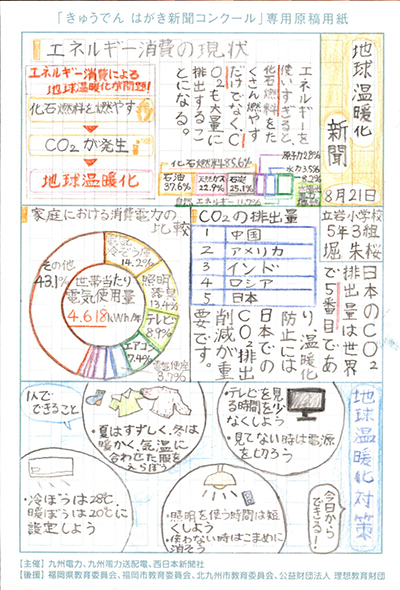 「きゅうでん はがき新聞コンクール」専用原稿用紙
地球温暖化
新聞
8月21日
立岩小学校
5年3組
堀 朱桜
エネルギー消費の現状
エネルギーを
使いすぎると、
化石燃料をた
くさん燃やす
だけでなく、C
O2も大量に
排出すること
になる。
エネルギー消費による
地球温暖化が問題!
化石燃料を燃やす
CO2が発生
地球温暖化
化石燃料85.6%
石油
37.6%
天然ガス
22.9%
石炭
25.1%
原子力2.8%
水力3.5%
8.2%
家庭における消費電力の
比較
世帯当たり
電気使用量
4.618kWh/年
14.2%
照明
器具
13.4%
テレビ
8.9%
エアコン
7.4%
電気便座
3.7%
その他
43.1%
CO2の排出量
1 中国
2 アメリカ
3 インド
4 ロシア
5 日本
日本のCO2
排出量は世界
で5番目であ
り、温暖化
防止には
日本での
CO2排出
削減が重
要です。
地球温暖化対策
今日から
できる!
1人で
できること
・夏はすずしく、冬は
暖かく、気温に
合わせた服を
えらぼう
テレビを見
る時間を少
なくしよう
・見てない時は電源
を切ろう
・冷ぼうは28℃、
暖ぼうは20℃に
設定しよう
・照明を使う時間は短
くしよう
・使わない時はこまめに
消そう
【主催】九州電力、九州電力送配電、西日本新聞社
【後援】福岡県教育委員会、福岡市教育委員会、北九州市教育委員会、公益財団法人 理想教育財団